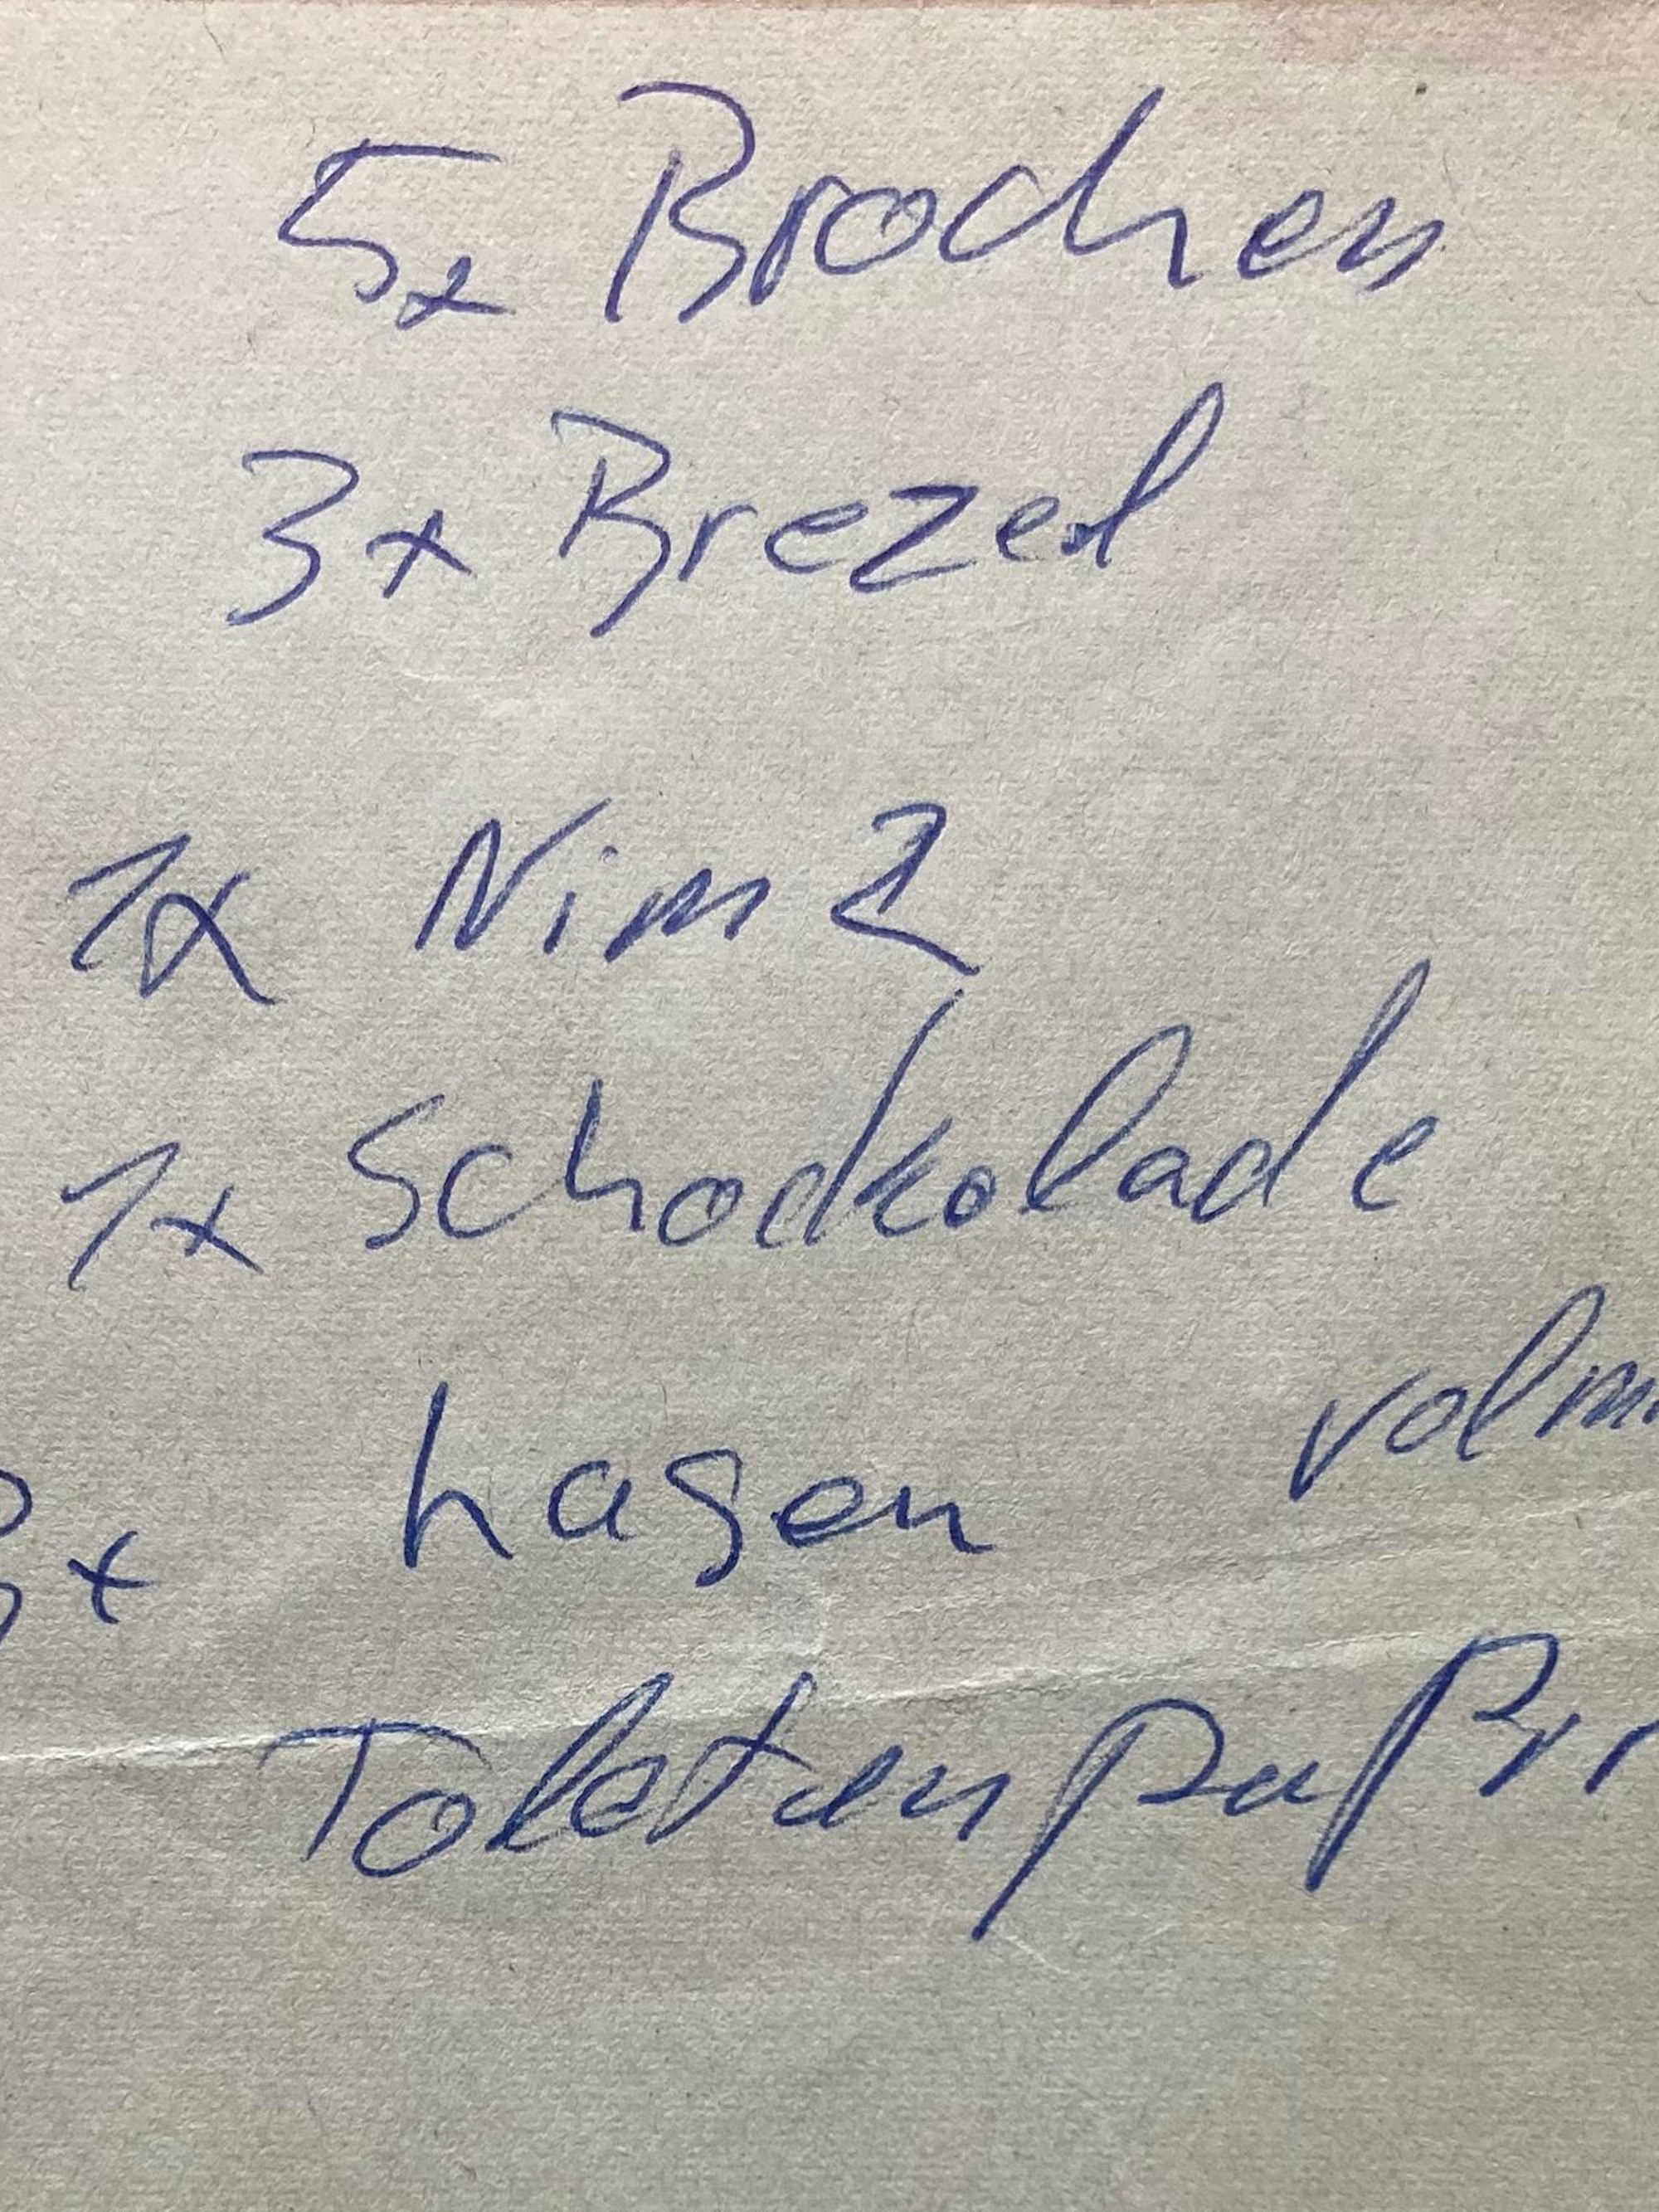 5x Brochen
3x Brezel
1x Nim2
1x Schockolade
volm
3x hasen
Toletenpapir